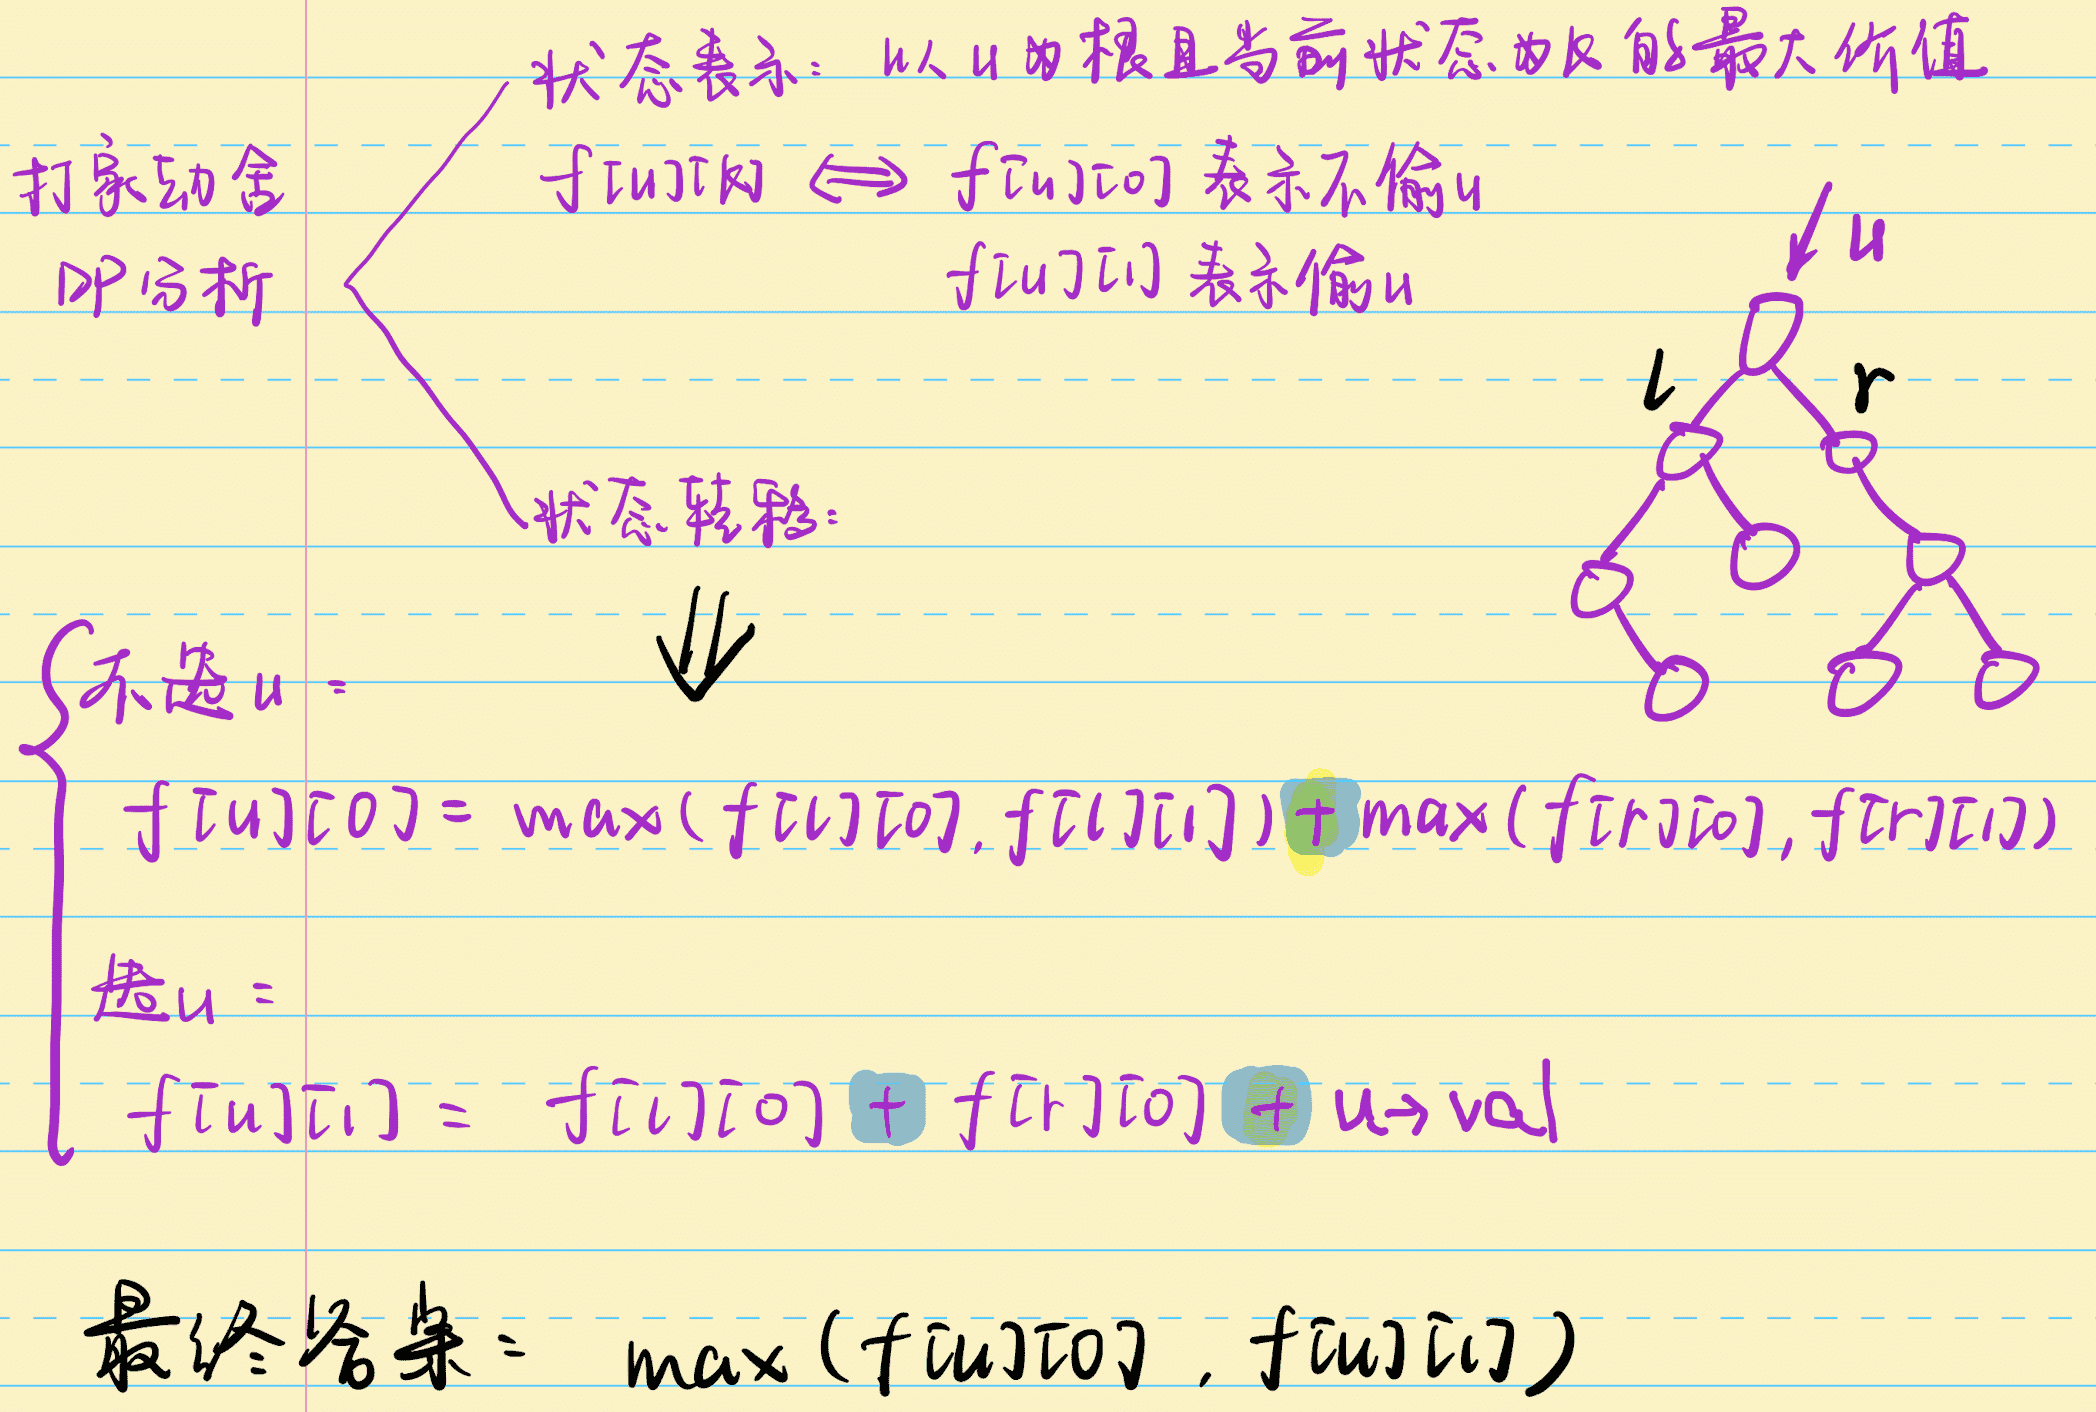 状态表示: 以u为根且当前状态为K的最大价值
打家劫舍
DP分析
f[u][K] ⟺ f[u][0] 表示不偷u
f[u][1] 表示偷u
u
l r
状态转移:
不选u:
f[u][0] = max(f[l][0], f[l][1]) + max(f[r][0], f[r][1])
选u:
f[u][1] = f[l][0] + f[r][0] + u→val
最终答案: max(f[u][0], f[u][1])